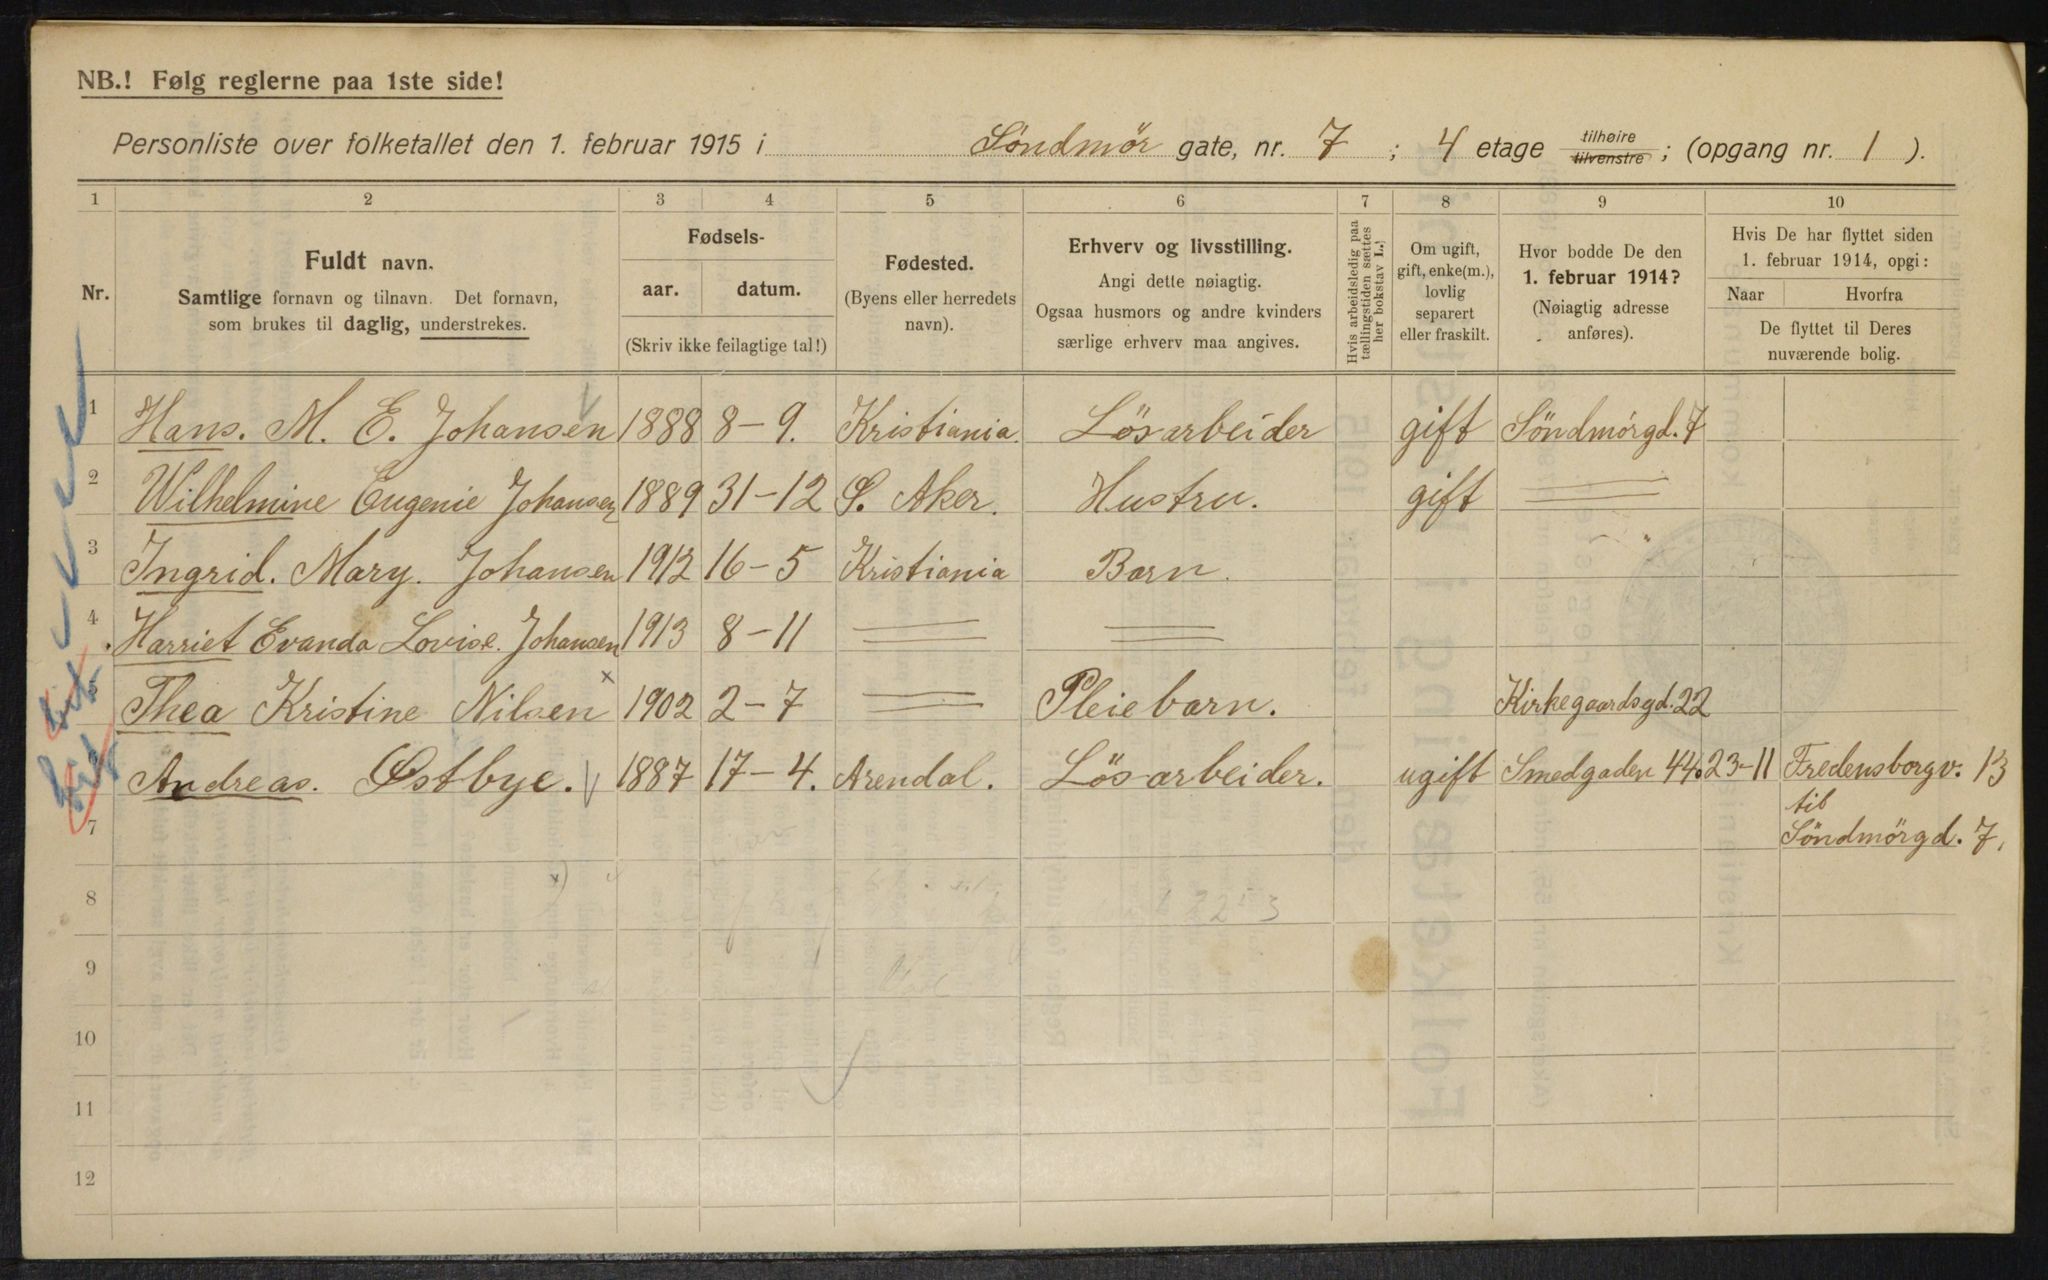 NB.! Følg reglerne paa 1ste side!
Personliste over folketallet den 1. februar 1915 i Söndmör gate, nr. 7 ; 4 etage tilhøire tilvenstre ; (opgang nr. 1 ).
1 2 3 4 5 6 7 8 9 10
Nr.
Fuldt navn.
Samtlige fornavn og tilnavn. Det fornavn,
som brukes til daglig, understrekes.
Fødsels-
aar. datum.
(Skriv ikke feilagtige tal!)
Fødested.
(Byens eller herredets
navn).
Erhverv og livsstilling.
Angi dette nøiagtig.
Ogsaa husmors og andre kvinders
særlige erhverv maa angives.
Hvis arbeidsledig paa
tællingstiden sættes
her bokstav L.)
Om ugift,
gift, enke(m.),
lovlig
separert
eller fraskilt.
Hvor bodde De den
1. februar 1914?
(Nøiagtig adresse
anføres).
Hvis De har flyttet siden
1. februar 1914, opgi:
Naar Hvorfra
De flyttet til Deres
nuværende bolig.
1 Hans. M. E. Johansen 1888 8-9. Kristiania. Lösarbeider gift Söndmörgd. 7
2 Wilhelmine Eugenie Johansen 1889 31-12 S. Aker. Hustru. gift
3 Ingrid. Mary. Johansen 1912 16-5 Kristiania Barn. "
4 Harriet Evanda Lovise. Johansen 1913 8-11
5 Thea Kristine Nilsen x 1902 2-7 Pleiebarn. Kirkegaardsgd. 22
6 Andreas. Østbye. 1887 17-4. Arendal. Lösarbeider. ugift Smedgaden 44. 23-11 Fredensborgv. 13
til
7 Söndmörgd. 7,
8
9
10
11
12